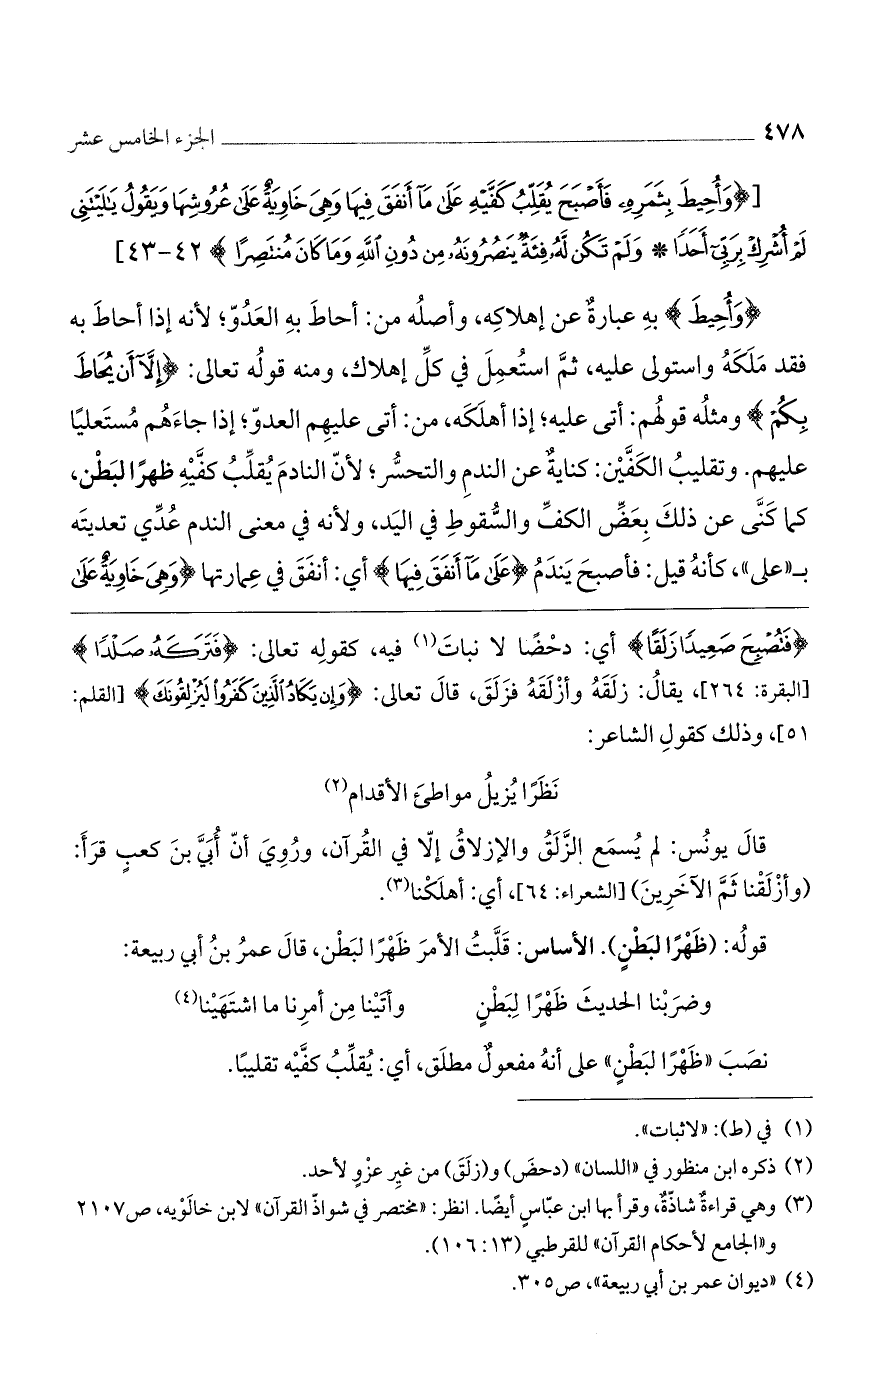 ٤٧٨ الجزء الخامس عشر
[﴿وَأُحِيطَ بِثَمَرِهِۦ فَأَصْبَحَ يُقَلِّبُ كَفَّيْهِ عَلَىٰ مَآ أَنفَقَ فِيهَا وَهِىَ خَاوِيَةٌ عَلَىٰ عُرُوشِهَا وَيَقُولُ يَٰلَيْتَنِى
لَمْ أُشْرِكْ بِرَبِّىٓ أَحَدًا * وَلَمْ تَكُن لَّهُۥ فِئَةٌ يَنصُرُونَهُۥ مِن دُونِ ٱللَّهِ وَمَا كَانَ مُنتَصِرًا﴾ ٤٢-٤٣]
﴿وَأُحِيطَ﴾ بهِ عبارةٌ عن إهلاكِه، وأصلُه من: أحاطَ بهِ العَدُوّ؛ لأنه إذا أحاطَ به
فقد مَلَكَهُ واستولى عليه، ثمَّ استُعمِلَ في كلِّ إهلاك، ومنه قولُه تعالى: ﴿إِلَّآ أَن يُحَاطَ
بِكُمْ﴾ ومثلُه قولُهم: أتى عليه؛ إذا أهلَكَه، من: أتى عليهِم العدوّ؛ إذا جاءَهُم مُستَعليًا
عليهم. وتقليبُ الكَفَّيْن: كنايةٌ عن الندمِ والتحسُّر؛ لأنّ النادمَ يُقلِّبُ كفَّيْهِ ظهرًا لبَطْن،
كما كَنَّى عن ذلكَ بِعَضِّ الكفِّ والسُّقوطِ في اليَد، ولأنه في معنى الندم عُدِّي تعديتَه
بـ«على»، كأنهُ قيل: فأصبحَ يَندَمُ ﴿عَلَىٰ مَآ أَنفَقَ فِيهَا﴾ أي: أنفَقَ في عِمارتها ﴿وَهِىَ خَاوِيَةٌ عَلَىٰ
﴿فَتُصْبِحَ صَعِيدًا زَلَقًا﴾ أي: دحْضًا لا نباتَ(١) فيه، كقولِه تعالى: ﴿فَتَرَكَهُۥ صَلْدًا﴾
[البقرة: ٢٦٤]، يقالُ: زلَقَهُ وأزْلَقَهُ فزَلَقَ، قالَ تعالى: ﴿وَإِن يَكَادُ ٱلَّذِينَ كَفَرُوا۟ لَيُزْلِقُونَكَ﴾ [القلم:
٥١]، وذلك كقولِ الشاعر:
نَظَرًا يُزيلُ مواطئَ الأقدام(٢)
قالَ يونُس: لم يُسمَعِ الزَّلَقُ والإزلاقُ إلّا في القُرآن، ورُوِيَ أنّ أُبَيَّ بنَ كعبٍ قرَأَ:
(وأزْلَقْنا ثَمَّ الآخَرِينَ) [الشعراء: ٦٤]، أي: أهلَكْنا(٣).
قولُه: (ظَهْرًا لبَطْنٍ). الأساس: قَلَّبتُ الأمرَ ظَهْرًا لبَطْن، قالَ عمرُ بنُ أبي ربيعة:
وضرَبْنا الحديثَ ظَهْرًا لِبَطْنٍ وأتَيْنا مِن أمرِنا ما اشتَهَيْنا(٤)
نصَبَ «ظَهْرًا لبَطْنٍ» على أنهُ مفعولٌ مطلَق، أي: يُقلِّبُ كفَّيْه تقليبًا.
(١) في (ط): «لا ثبات».
(٢) ذكره ابن منظور في «اللسان» (دحضَ) و(زلَقَ) من غيرِ عزْوٍ لأحد.
(٣) وهي قراءةٌ شاذّةٌ، وقرأ بها ابن عبّاسٍ أيضًا. انظر: «مختصر في شواذّ القرآن» لابن خالَوْيه، ص٢١٠٧
و«الجامع لأحكام القرآن» للقرطبي (١٣: ١٠٦).
(٤) «ديوان عمر بن أبي ربيعة»، ص٣٠٥.